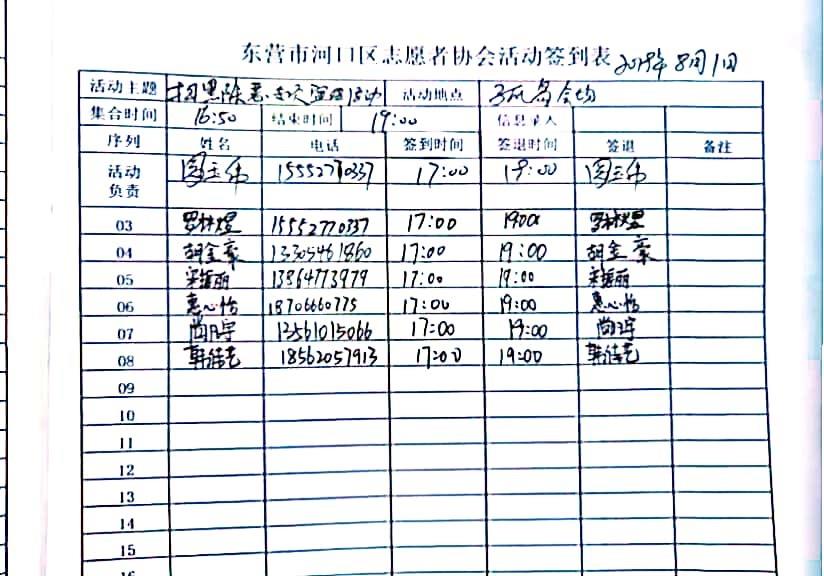 东营市河口区志愿者协会活动签到表 2018年8月1日
活动主题 扫黑除恶专项宣传活动 活动地点 孤岛会场
集合时间 16:50 结束时间 19:00 信息录入
序列 姓名 电话 签到时间 签退时间 签退 备注
活动负责 15552770337 17:00 19:00
03 罗林煜 15552770337 17:00 1900 罗林煜
04 胡金豪 13305461860 17:00 19:00 胡金豪
05 13964773979 17:00 19:00
06 惠心怡 18706660775 17:00 19:00 惠心怡
07 13561015066 17:00 19:00
08 18562057913 17:00 19:00
09
10
11
12
13
14
15
16